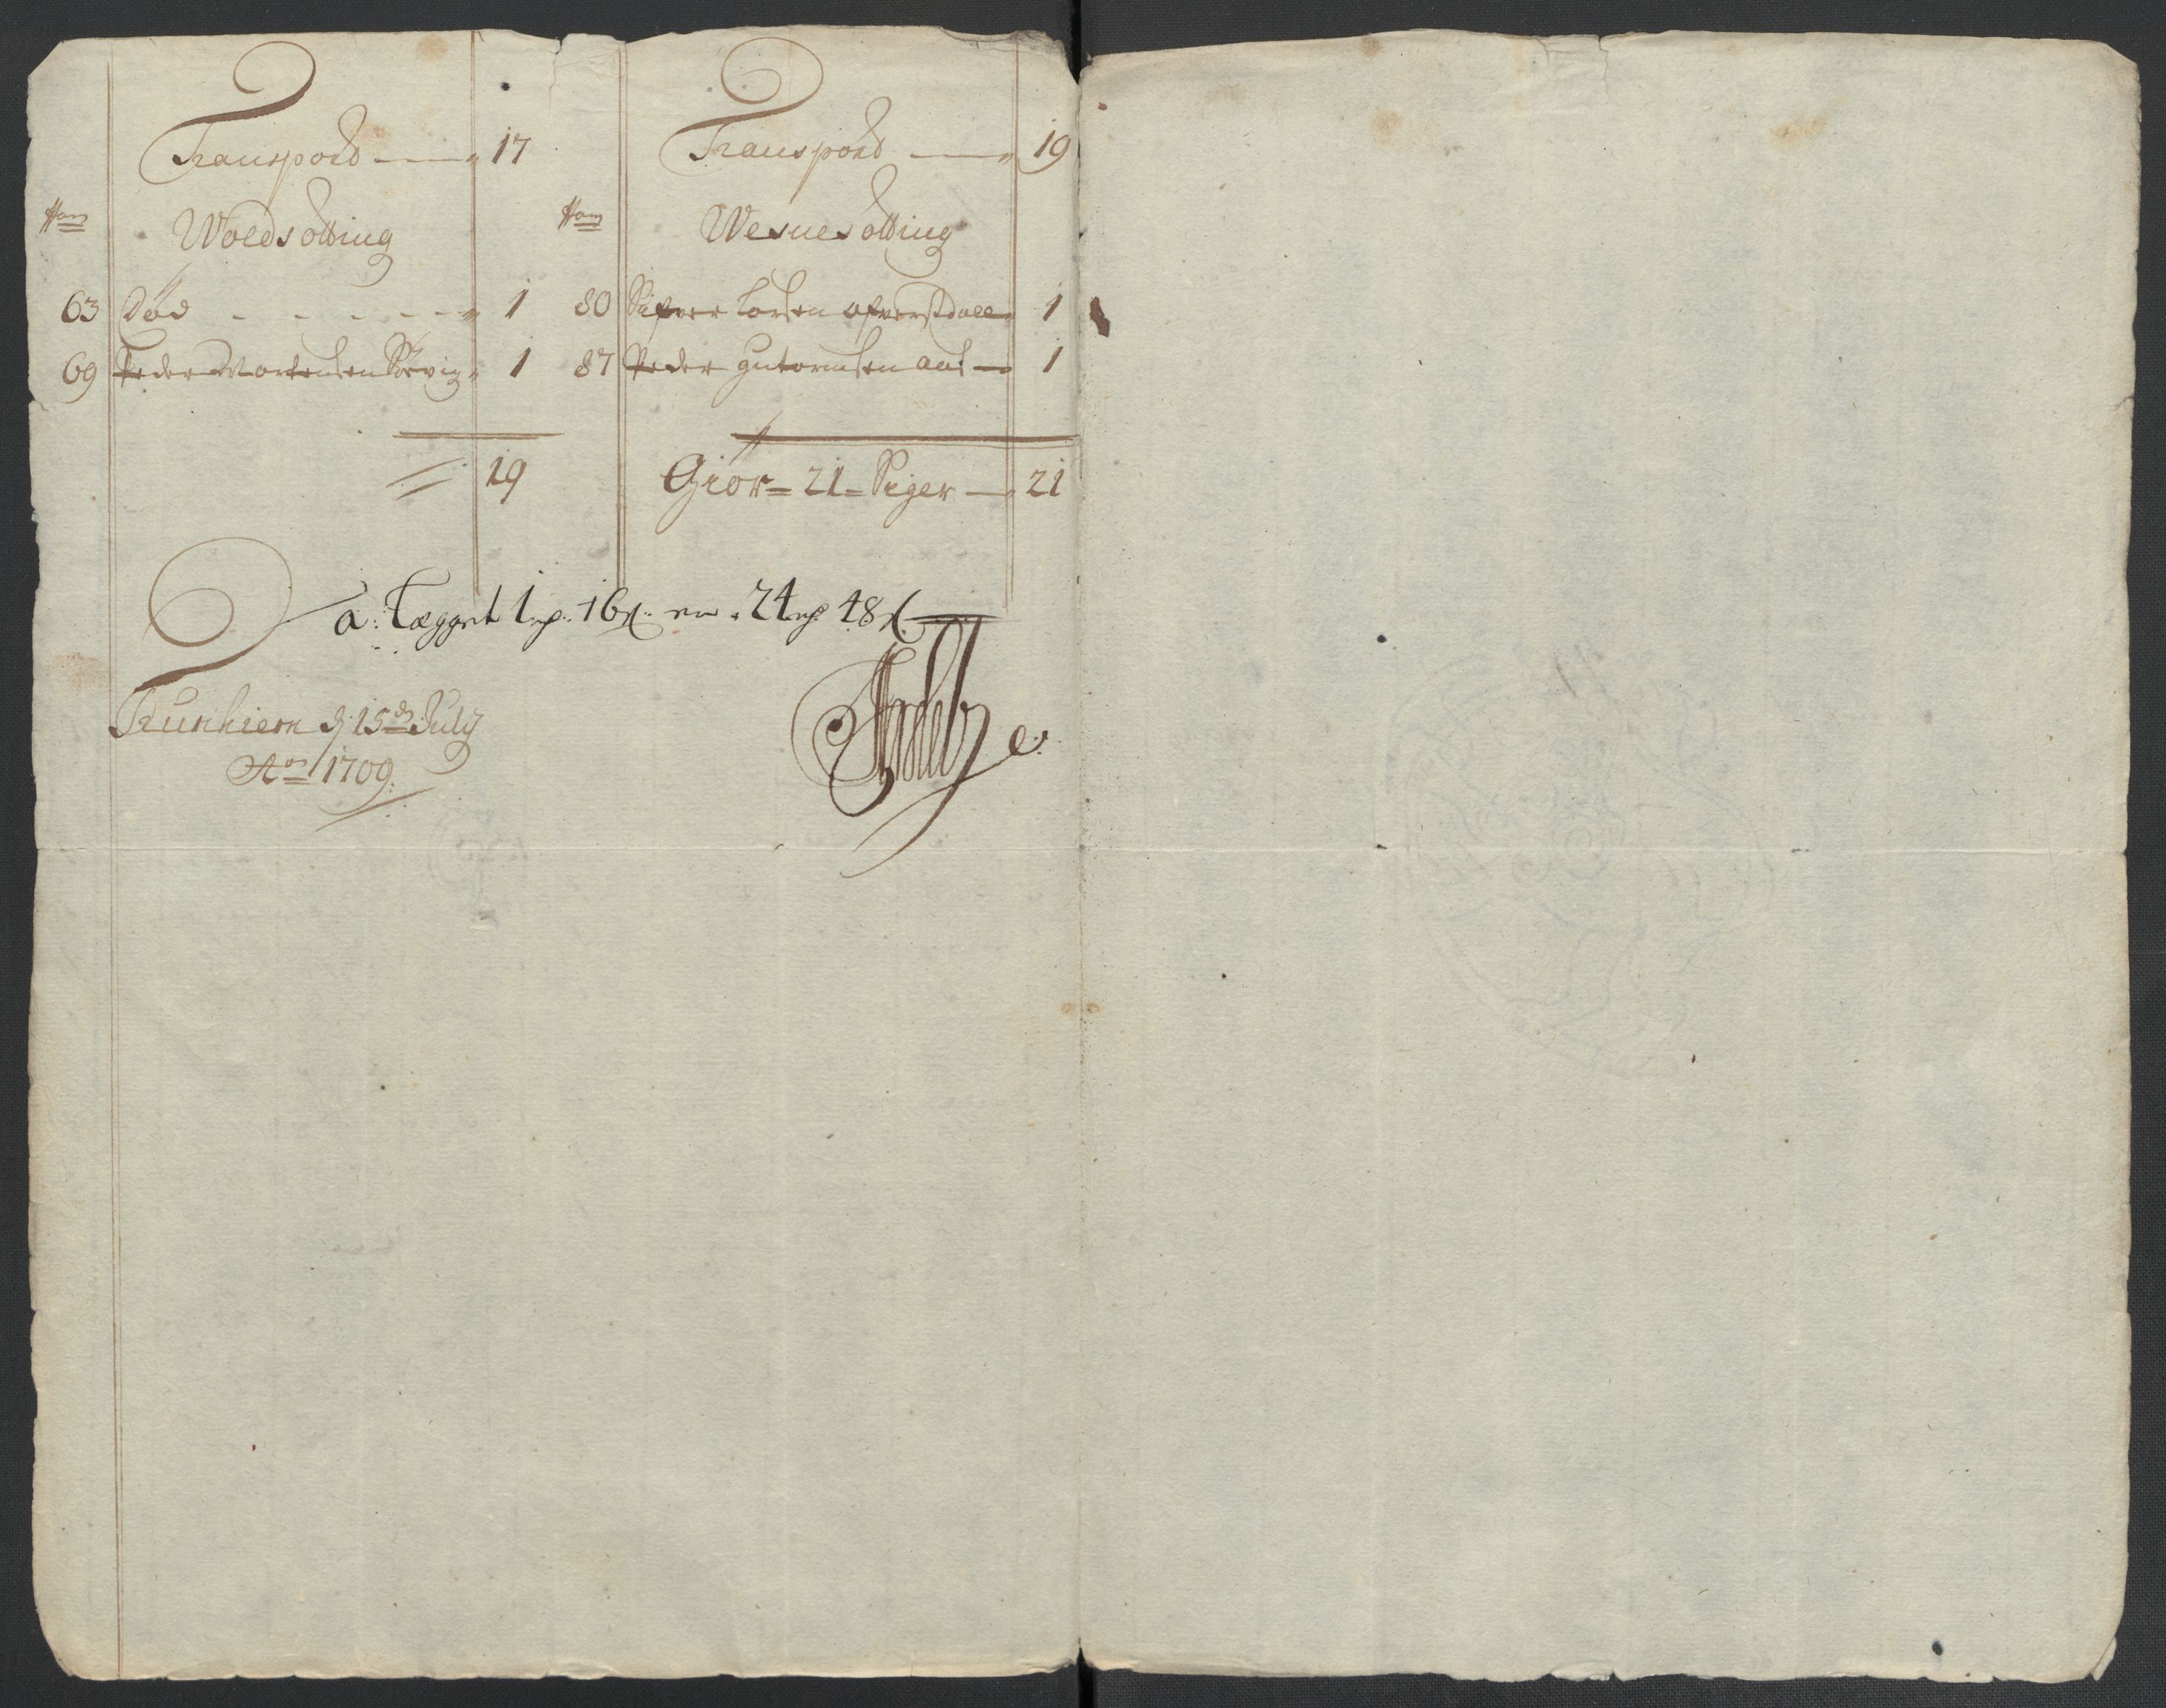 Transpord — 17
No
Woldsotting
63 Død - - - - - 1
69 Peder Mortensen Sørvig 1
19
Transpord — 19
No
Wesnesotting
80 Sifver Larsen ofverstdall 1
87 Peder Gutormsen Aas — 1
Giör = 21 = Piger — 21
a: Lægget 1 rd. 16 s. er . 24 rd 48 s.
Trunhiem d: 15de July
Ao 1709.